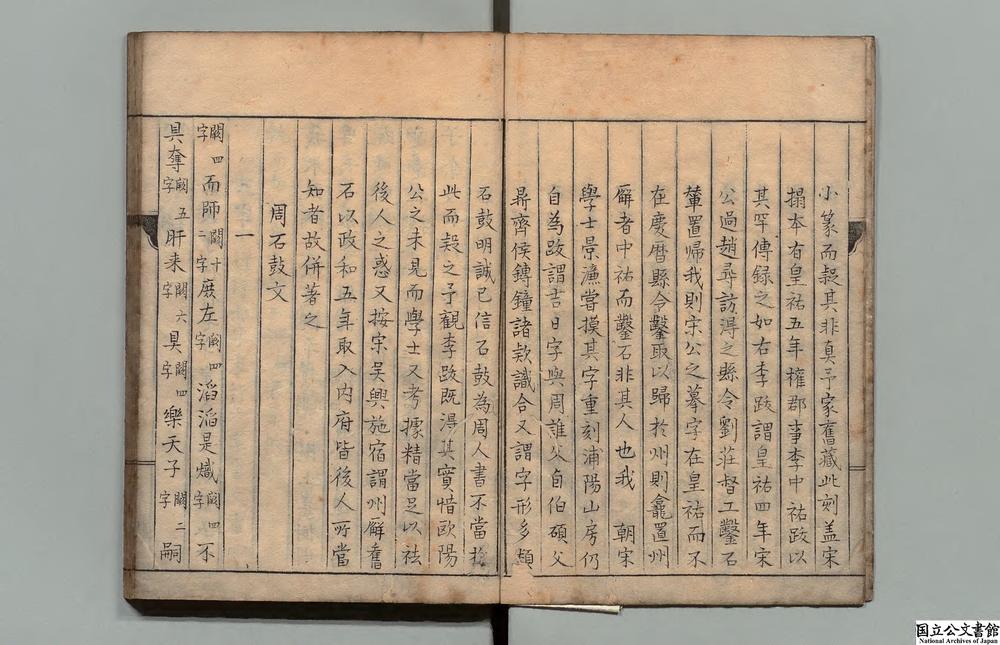 小篆而疑其非真予家舊藏此刻盖宋
搨本有皇祐五年權郡事李中祐跋以
其罕傳録之如右李跋謂皇祐四年宋
公過趙尋訪得之縣令劉莊督工鑿石
輦置歸我則宋公之摹字在皇祐而不
在慶暦縣令鑿取以歸於州則龕置州
廨者中祐而鑿石非其人也我 朝宋
學士景濂嘗摸其字重刻浦陽山房仍
自為跋謂吉日字與周誰父自伯碩父
鼎齊侯鎛鐘諸欵識合又謂字形多類
石鼓明誠已信石鼓為周人書不當於
此而疑之予觀李跋既得其實惜歐陽
公之未見而學士又考據精當足以祛
後人之惑又按宋吴興施宿謂州廨舊
石以政和五年取入内府皆後人所當
知者故併著之
周石鼓文
一
闕四字而師闕十二字庶左闕四字滔滔是熾闕四字不
具奪闕五字肝来闕六字具闕四字樂天子闕二字嗣
国立公文書館
National Archives of Japan